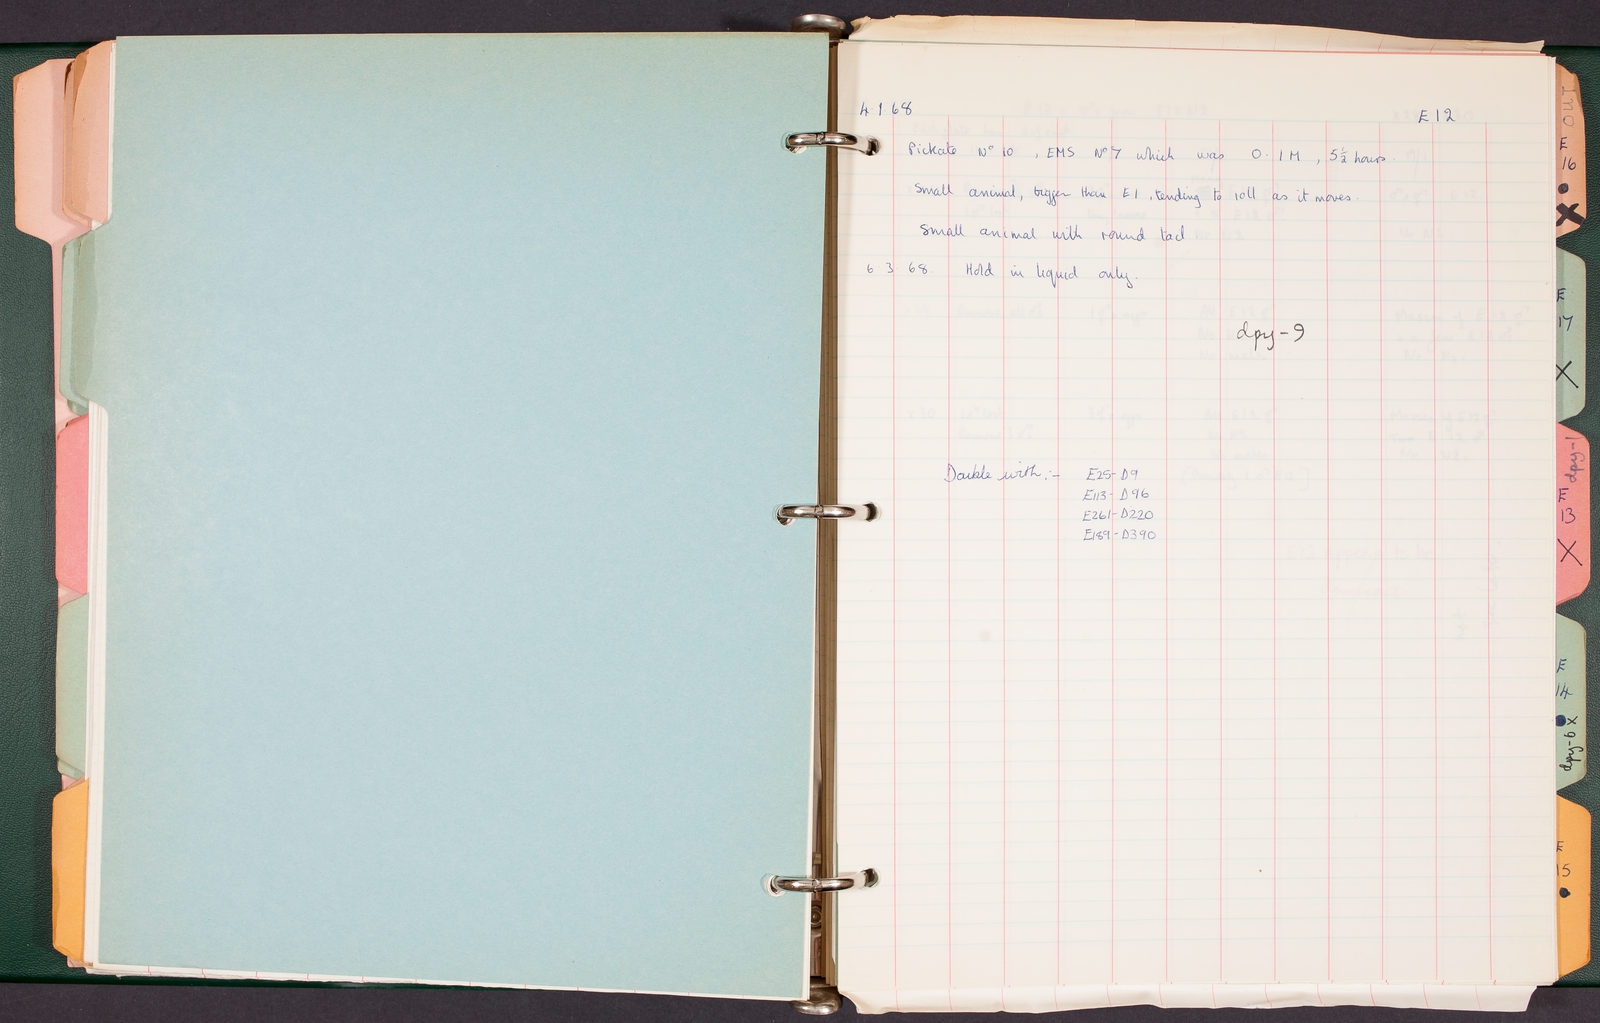 4 1 68
E12
Pickate Nº 10 , EMS Nº 7 which was 0.1M , 5½ hours.
Small animal, bigger than E1, tending to roll as it moves.
Small animal with round tail
6 3 68. Hold in liquid only.
dpy-9
Double with :- E25-D9
E113-D96
E261-D220
E189-D390
OUT
E
16
X
E
17
X
dpy-1
E
13
X
E
14
X
dpy-6
E
15